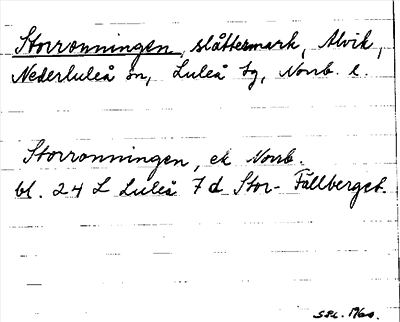 Storronningen, slåttermark, Alvik,
Nederluleå sn, Luleå tg, Norrb. l.
Storronningen, ek Norrb.
bl. 24 L Luleå 7 d Stor-Fällberget.